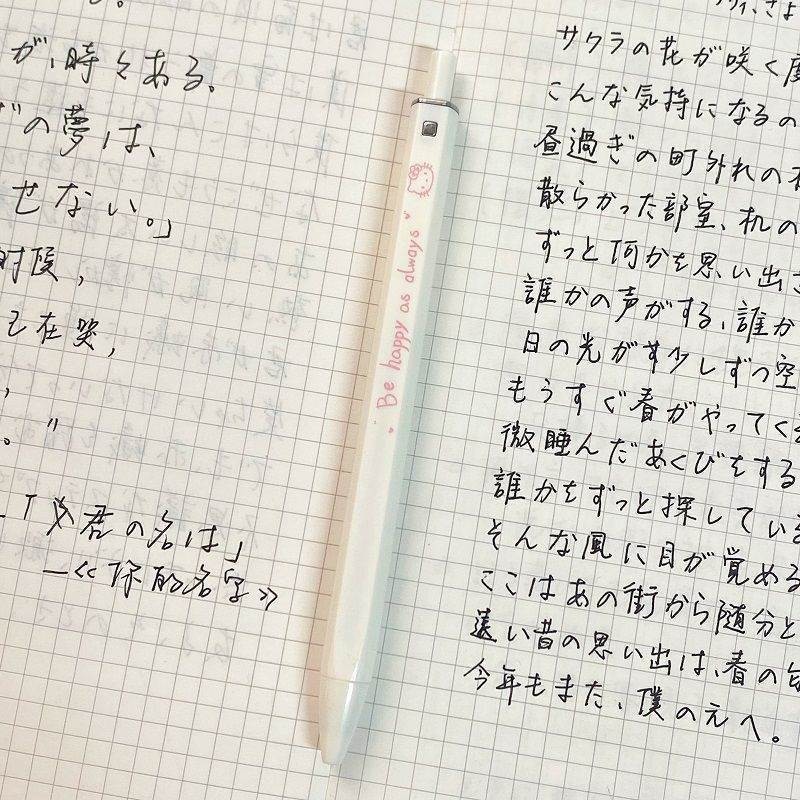 が、時々ある、
の夢は、
せない。」
时候，
在哭，
，
。"
「君の名は」
—《你的名字》
Be happy as always
サクラの花が咲く度
こんな気持になるの
昼過ぎの町外れの
散らかった部室、机の
ずっと何かを思い出さ
誰かの声がする、誰か
日の光が少しずつ空
もうすぐ春がやってくる
微睡んだあくびをする
誰かをずっと探している
そんな風に目が覚める
ここはあの街から随分と
遠い昔の思い出は、春の
今年もまた、僕のえへ。